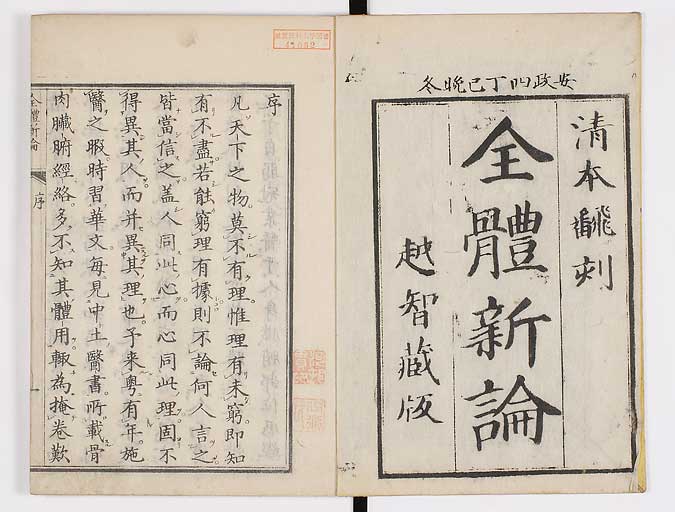 安政四丁巳晩冬
清本飜刻
全體新論
越智藏版
序
凡天下之物莫不有理惟理有未窮即知
有不盡若能窮理有據則不論何人言之
皆當信之蓋人同此心而心同此理固不
得異其人而并異其理也予来粵有年施
醫之暇時習華文每見中土醫書所載骨
肉臟腑經絡多不知其體用輒為掩卷歎
全體新論
序